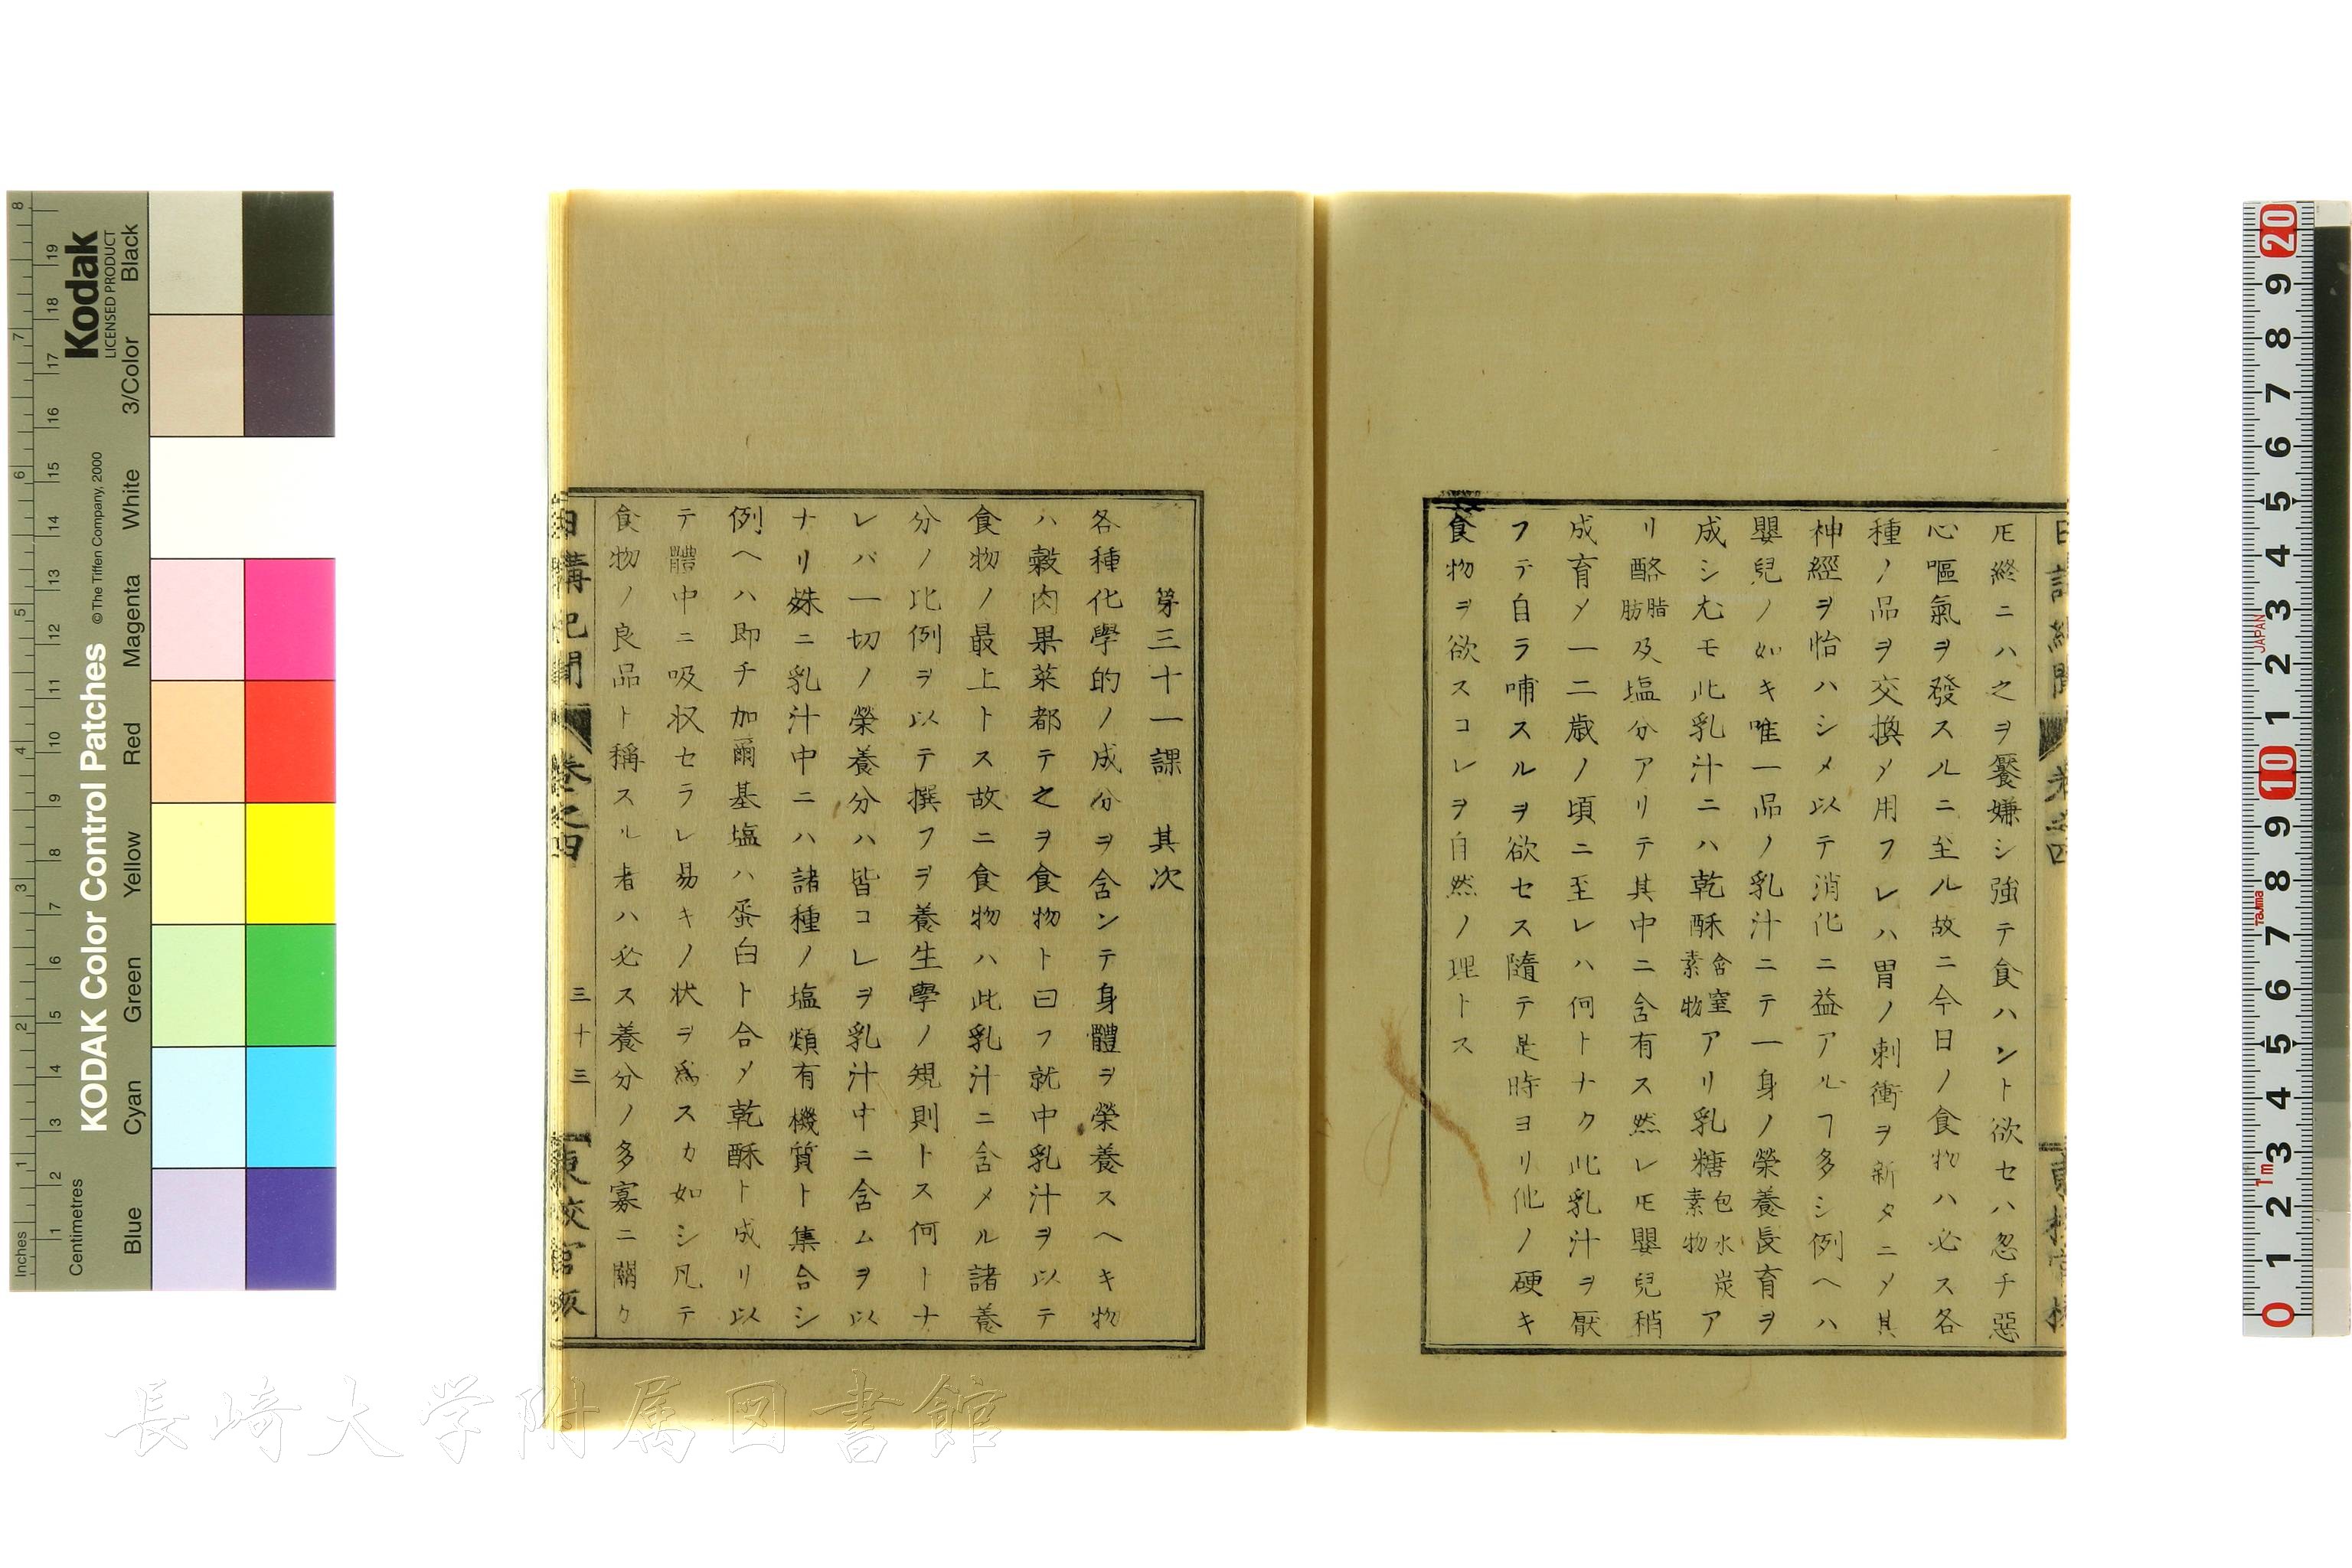 𪜈終ニハ之ヲ饜嫌シ強テ食ハント欲セハ忽チ惡
心嘔氣ヲ發スルニ至ル故ニ今日ノ食物ハ必ス各
種ノ品ヲ交換〆用フレハ胃ノ刺衝ヲ新タニ〆其
神經ヲ怡ハシメ以テ消化ニ益アルヿ多シ例ヘハ
嬰兒ノ如キ唯一品ノ乳汁ニテ一身ノ榮養長育ヲ
成シ尤モ此乳汁ニハ乾酥含窒素物アリ乳糖包水炭素物ア
リ酪脂肪及塩分アリテ其中ニ含有ス然レ𪜈嬰兒稍
成育〆一二歳ノ頃ニ至レハ何トナク此乳汁ヲ厭
フテ自ラ哺スルヲ欲セス隨テ是時ヨリ他ノ硬キ
食物ヲ欲スコレヲ自然ノ理トス
第三十一課 其次
各種化學的ノ成分ヲ含ンテ身體ヲ榮養スヘキ物
ハ穀肉果菜都テ之ヲ食物ト曰フ就中乳汁ヲ以テ
食物ノ最上トス故ニ食物ハ此乳汁ニ含メル諸養
分ノ比例ヲ以テ撰フヲ養生學ノ規則トス何トナ
レバ一切ノ榮養分ハ皆コレヲ乳汁中ニ含ムヲ以
ナリ殊ニ乳汁中ニハ諸種ノ塩類有機質ト集合シ
例ヘハ即チ加爾基塩ハ蛋白ト合〆乾酥ト成リ以
テ體中ニ吸収セラレ易キノ状ヲ為スカ如シ凡テ
食物ノ良品ト稱スル者ハ必ス養分ノ多寡ニ關ク
日講記聞 卷之四 三十三
Kodak
LICENSED PRODUCT
KODAK Color Control Patches
© The Tiffen Company, 2000
Black
3/Color
White
Magenta
Red
Yellow
Green
Cyan
Blue
Inches 1 2 3 4 5 6 7 8
Centimetres 1 2 3 4 5 6 7 8 9 10 11 12 13 14 15 16 17 18 19
0 1 2 3 4 5 6 7 8 9 10 1 2 3 4 5 6 7 8 9 20
1m
Tajima
JAPAN
長崎大学附属図書館